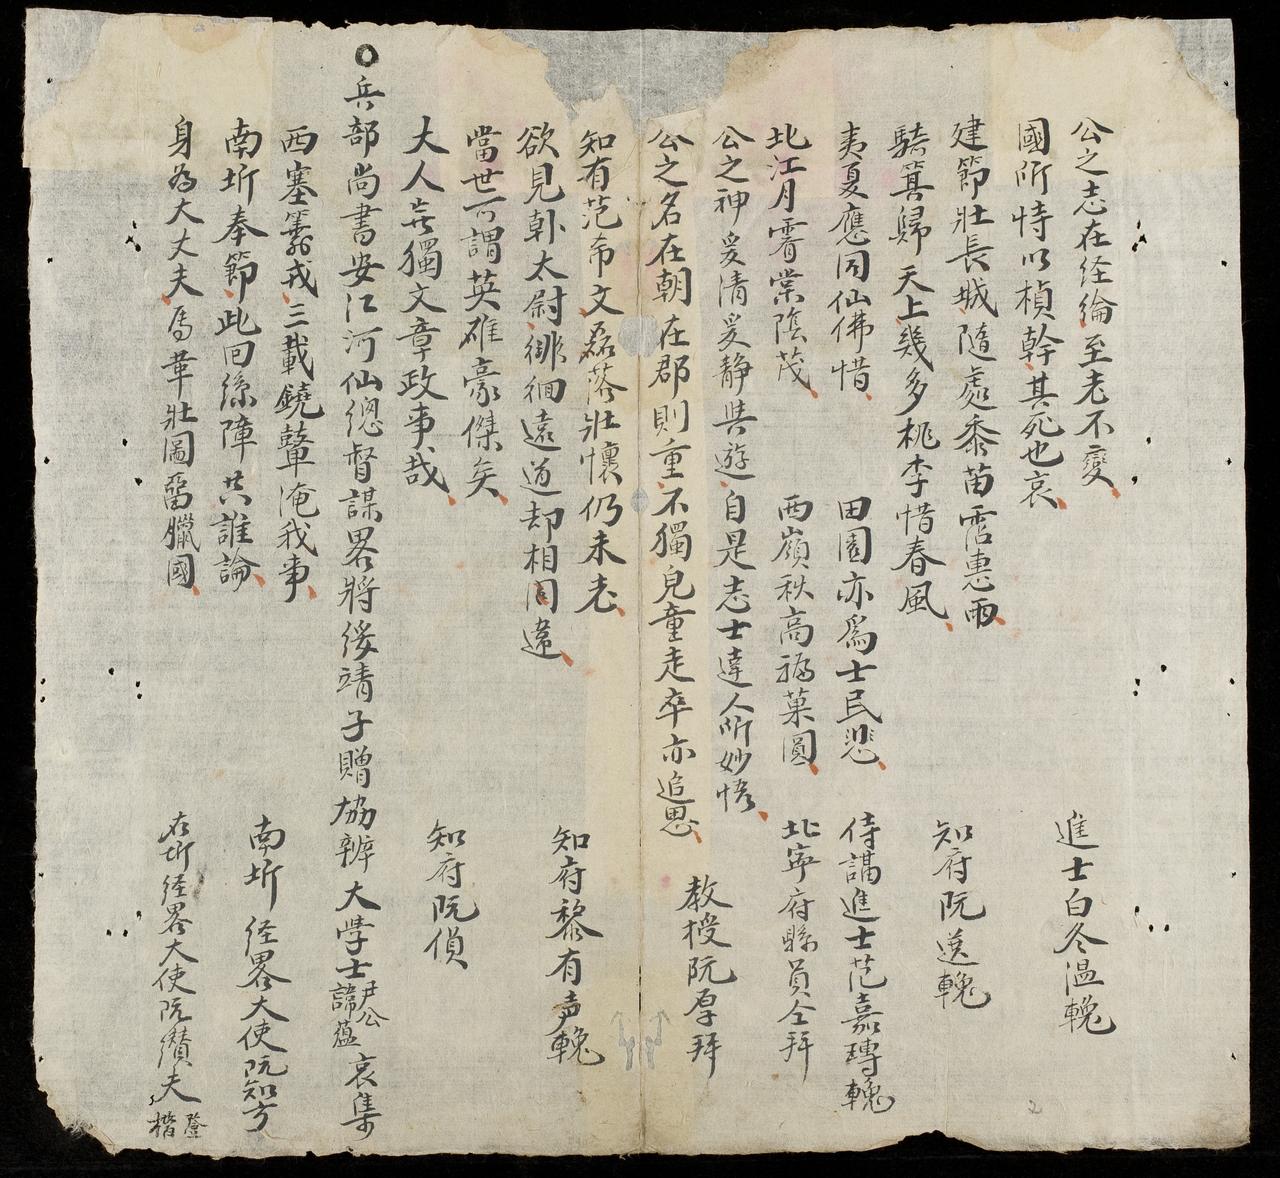 公之志在经綸至老不變
國所恃以楨幹其死也哀
進士白冬溫輓
建節壯長城隨處黍苗霑惠雨
騎箕歸天上幾多桃李惜春風
知府阮 輓
夷夏應同仙佛惜
田園亦為士民悲
侍講進士范嘉瑼輓
北江月霽棠陰茂
西嶺秋高 菓圓
北寧府縣員仝拜
公之神爰清爰静與遊自是志士達人所妙悟
公之名在朝在郡則重不獨兒童走卒亦追思
教授阮厚拜
知有范希文磊落壯懷仍未老
欲見韓太尉徘徊遠道却相違
知府黎有声輓
當世可謂英雄豪傑矣
大人豈獨文章政事哉
知府阮偵
兵部尚書安江河仙總督謀畧將綏靖子贈協辦大學士尹公諱蘊哀集
西塞籌戎三載鐃聲淹我事
南圻奉節此回絲障共誰論
南圻經畧大使阮知方
身為大丈夫馬革壯圖留臘國
右圻经畧大使阮績夫
登楷